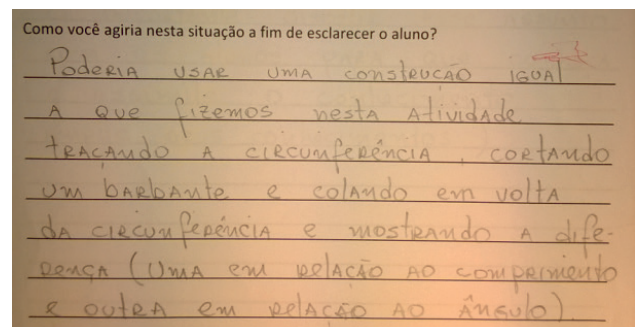 Como você agiria nesta situação a fim de esclarecer o aluno?
Poderia usar uma construção igual
a que fizemos nesta atividade
tracando a circunferência, cortando
um barbante e colando em volta
da circunferência e mostrando a dife-
rença (uma em relação ao comprimento
e outra em relação ao ângulo).